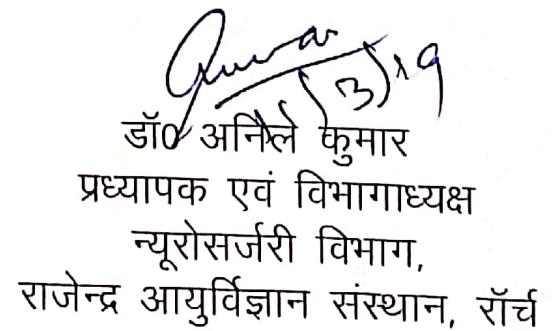 डॉ0 अनिल कुमार
प्रध्यापक एवं विभागाध्यक्ष
न्यूरोसर्जरी विभाग,
राजेन्द्र आयुर्विज्ञान संस्थान, रॉर्च